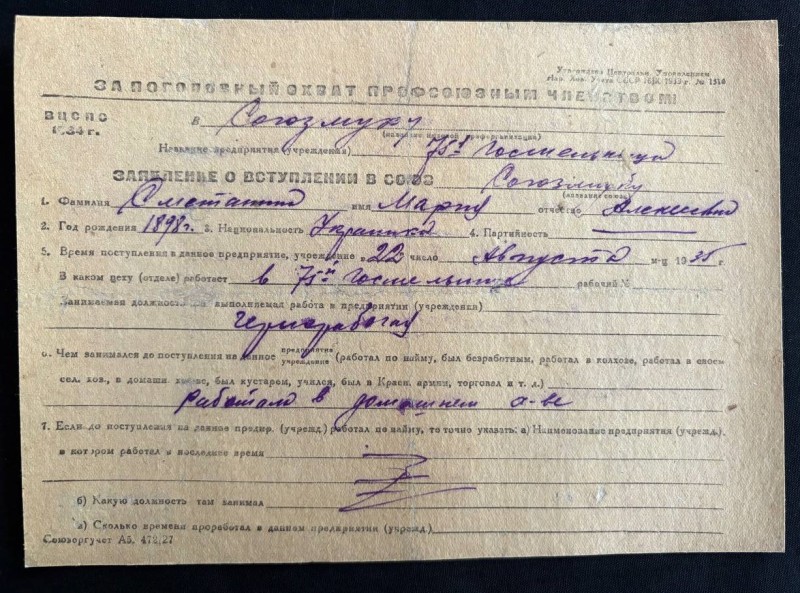 Утверждена Централн. Управлением
Нар. Хоз. Учета СССР 1933 г. № 1510
ЗА ПОГОЛОВНЫЙ ОХВАТ ПРОФСОЮЗНЫМ ЧЛЕНСТВОМ!
ВЦСПС
1934 г.
В Союзмуку
Название предприятия (учреждения) 75я Госмельница
ЗАЯВЛЕНИЕ О ВСТУПЛЕНИИ В СОЮЗ Союзмуку
(название союза)
1. Фамилия имя Мария отчество Алексеевна
2. Год рождения 1898 г. 3. Национальность Украинка 4. Партийность
5. Время поступления в данное предприятие, учреждение в 22 число Августа м-ц 1935 г.
В каком цеху (отделе) работает в 75й Госмельница рабочий №
Занимаемая должность или выполняемая работа в предприятии (учреждении)
Чернорабочая
6. Чем занимался до поступления на данное предприятие учреждение (работал по найму, был безработным, работал в колхозе, работал в своем
сел. хоз., в домашн. хоз-ве, был кустарем, учился, был в Красн. армии, торговал и т. д.)
работала в домашнем х-ве
7. Если до поступления на данное предпр. (учрежд.) работал по найму, то точно указать: а) Наименование предприятия (учрежд.),
в котором работал в последнее время
б) Какую должность там занимал
в) Сколько времени проработал в данном предприятии (учрежд.)
Союзоргучет А5. 472,27